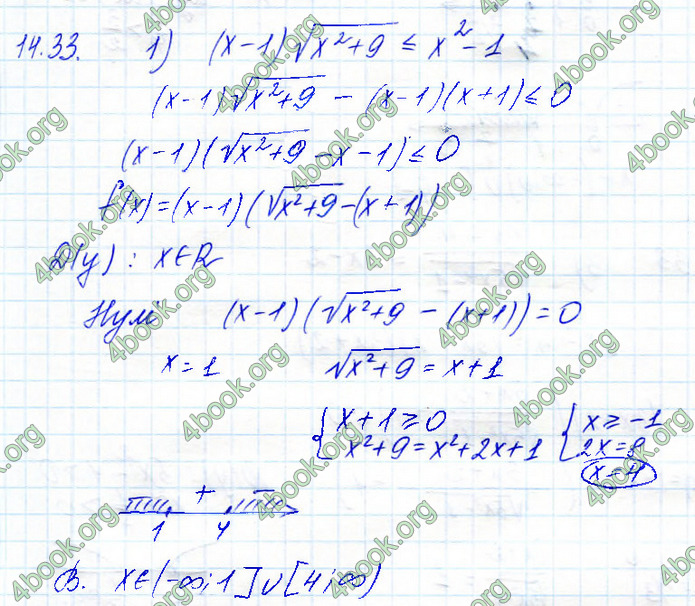 14.33. 1) (x-1)√(x²+9) ≤ x²-1
(x-1)√(x²+9) - (x-1)(x+1) ≤ 0
(x-1)(√(x²+9) - x - 1) ≤ 0
f(x) = (x-1)(√(x²+9) - (x+1))
D(y): x∈R
Нулі (x-1)(√(x²+9) - (x+1)) = 0
x = 1 √(x²+9) = x+1
{ x+1 ≥ 0 { x ≥ -1
x²+9 = x²+2x+1 2x = 8
x = 4
- + -
1 4
В. x∈(-∞; 1]∪[4; ∞)
4book.org